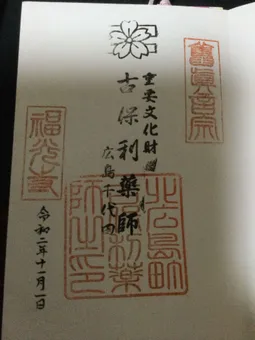 重要文化財
古保利薬師
広島千代田
令和二年十一月一日
福光寺
北広島町
古保利薬
師之印